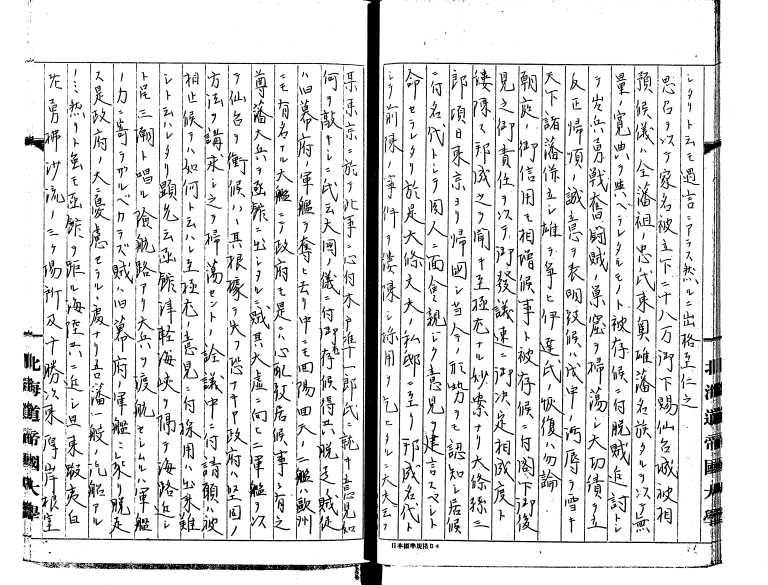 シタリト云モ過言ニアラス然ルニ出格至仁之
思召ヲ以テ家名被立下二十八万御下賜仙台城被相
預候儀ハ全藩祖忠氏来奥雄藩名族タルヲ以テ無
量ノ寛典ヲ与ヘラレタルモノト被存候ニ付脱賊追討トシ
テ出兵勇戦奮闘賊ノ巣窟ヲ掃蕩シ大功績ヲ立
反正帰順ノ誠意ヲ表明致候ハバ戊申ノ汚辱ヲ雪キ
天下諸藩併立シ雄ヲ争ヒ伊達氏ノ恢復ハ勿論
朝庭ノ御信用モ相増候事ト被存候ニ付閣下御後
見之御責任ヲ以テ御発議速ニ御決定相成度ト
縷陳ス邦成之ヲ聞キ至極尤ナル妙案ナリ大條孫三
郎頃日東京ヨリ帰国シ当今ノ形勢ヲモ認知シ居候
ニ付名代トシテ同人ニ面会親シク意見ヲ建言スベシト
命セラレタリ於是大條大夫ノ私邸ニ至リ邦成名代ト
シテ前條ノ事件ヲ縷陳シ採用ヲ乞ヒタルニ大夫云フ
某東京ニ於テ此事ニ心付木戸準一郎氏ニ就キ意見如
何ヲ敲キシニ氏云夫国ノ儀ニ付御存候得共脱走賊徒
ハ旧幕府ノ軍艦ヲ奪ヒ去リ中ニモ回陽回天ノ二艦ハ欧州
ニモ有名ナル大艦ニテ政府モ是ニハ心配致居候事ニ有之
尊藩大兵ヲ函館ニ出シタルニ賊其大虚ニ向ヒ二軍艦ヲ以
テ仙台ヲ衝候ハバ其根拠ヲ失フ恐ナキヤ政府堅固ノ
方法ヲ講求シ之ヲ掃蕩セントノ詮議中ニ付請願ハ被
相止候テハ如何ト云ハレ至極尤ノ意見ニ付採用ハ出来難
シト云ハレタリ顕允云函館津軽海峡ヲ隔テ海路近シ
ト云三潮ト唱ル険航路アリ大兵ヲ渡航セシムルハ軍艦
ノ力ニ寄ラザルベカラズ賊ハ旧幕府ノ軍艦ニ乗リ脱走
ス是政府ノ大ニ憂慮セラルル処ナリ吾藩般ノ汽船アル
ノミ然リト雖モ函館ヲ距ル海陸共ニ近シ且東蝦夷白
老勇払沙流ノ三ケ場所及十勝次来厚岸根室
北海道帝國大學
北海道帝國大學
日本標準規格B4